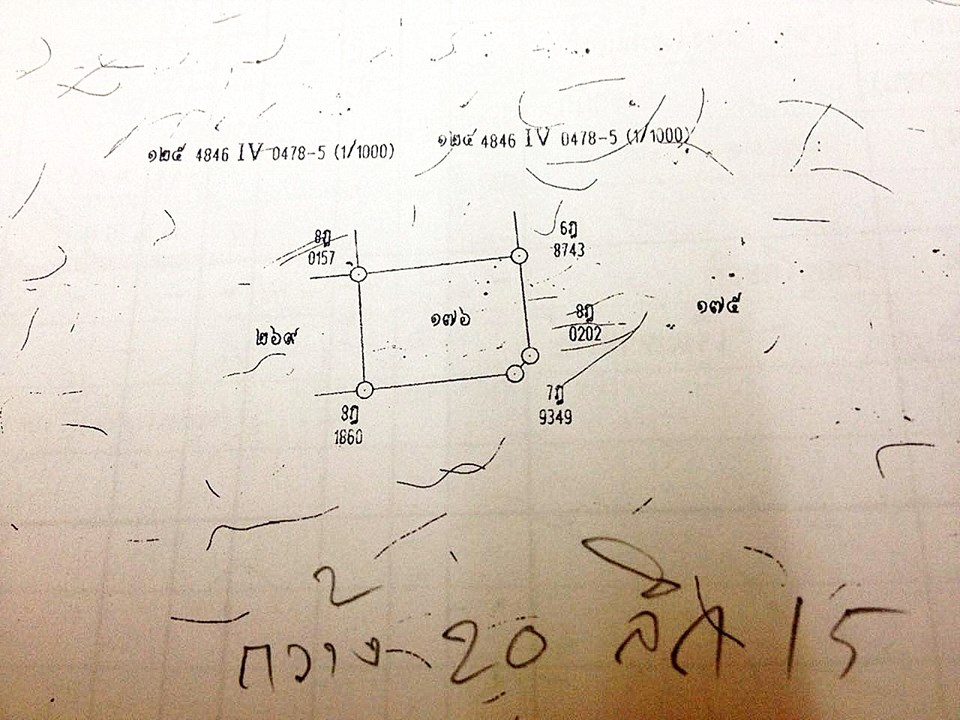 ๑๒๕ 4846 IV 0478-5 (1/1000)
๑๒๕ 4846 IV 0478-5 (1/1000)
8ฎ
0157
6ฎ
8743
๒๖๙
๑๗๖
8ฎ
0202
๑๗๕
8ฎ
1860
7ฎ
9349
กว้าง 20 ลึก 15